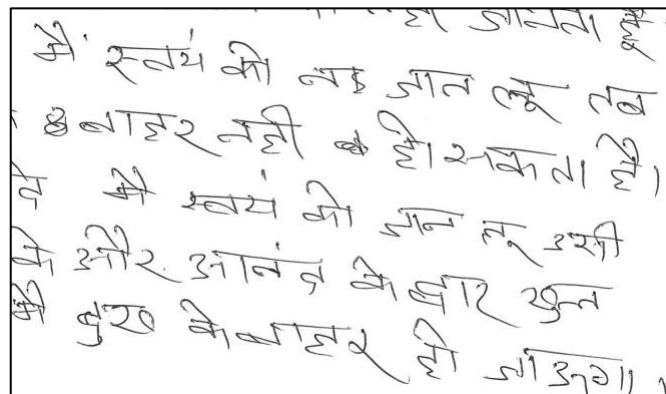 जानता है
मैं स्वयं को न जान लू तब
बाहर नही हो सकता है।
मै स्वयं को जान लू उसी
के और आनंद के द्वार खुल
मै दुख के बाहर हो जाऊगा।